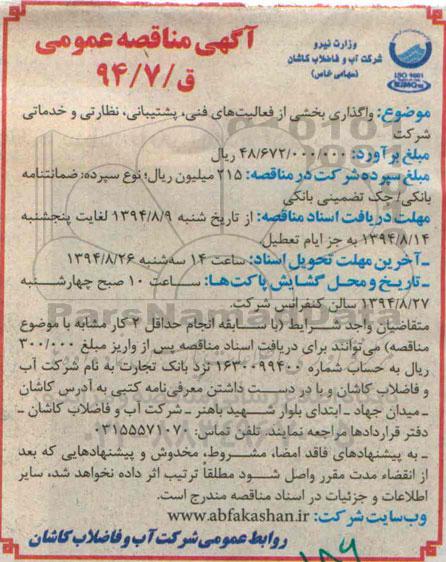 وزارت نیرو
شرکت آب و فاضلاب کاشان
(سهامی خاص)
ISO 9001
آگهی مناقصه عمومی
ق/۹۴/۷
موضوع: واگذاری بخشی از فعالیت‌های فنی، پشتیبانی، نظارتی و خدماتی
شرکت
مبلغ برآورد: ۴۸/۶۷۲/۰۰۰/۰۰۰ ریال
مبلغ سپرده شرکت در مناقصه: ۲۱۵ میلیون ریال؛ نوع سپرده: ضمانتنامه
بانکی/ چک تضمینی بانکی
مهلت دریافت اسناد مناقصه: از تاریخ شنبه ۱۳۹۴/۸/۹ لغایت پنجشنبه
۱۳۹۴/۸/۱۴ به جز ایام تعطیل.
ـ آخرین مهلت تحویل اسناد: ساعت ۱۴ سه‌شنبه ۱۳۹۴/۸/۲۶
ـ تاریخ و محل گشایش پاکت‌ها: ساعت ۱۰ صبح چهارشنبه
۱۳۹۴/۸/۲۷ سالن کنفرانس شرکت.
متقاضیان واجد شرایط (با سابقه انجام حداقل ۲ کار مشابه با موضوع
مناقصه) می‌توانند برای دریافت اسناد مناقصه پس از واریز مبلغ ۳۰۰/۰۰۰
ریال به حساب شماره ۱۶۳۰۰۹۹۴۰۰ نزد بانک تجارت به نام شرکت آب
و فاضلاب کاشان و با در دست داشتن معرفی‌نامه کتبی به آدرس کاشان
ـ میدان جهاد ـ ابتدای بلوار شهید باهنر ـ شرکت آب و فاضلاب کاشان ـ
دفتر قراردادها مراجعه نمایند. تلفن تماس: ۰۳۱۵۵۵۷۱۰۷۰
ـ به پیشنهادهای فاقد امضا، مشروط، مخدوش و پیشنهادهایی که بعد
از انقضاء مدت مقرر واصل شود مطلقاً ترتیب اثر داده نخواهد شد، سایر
اطلاعات و جزئیات در اسناد مناقصه مندرج است.
وب‌سایت شرکت: www.abfakashan.ir
روابط عمومی شرکت آب و فاضلاب کاشان
۱۸۶
ParsNamadData